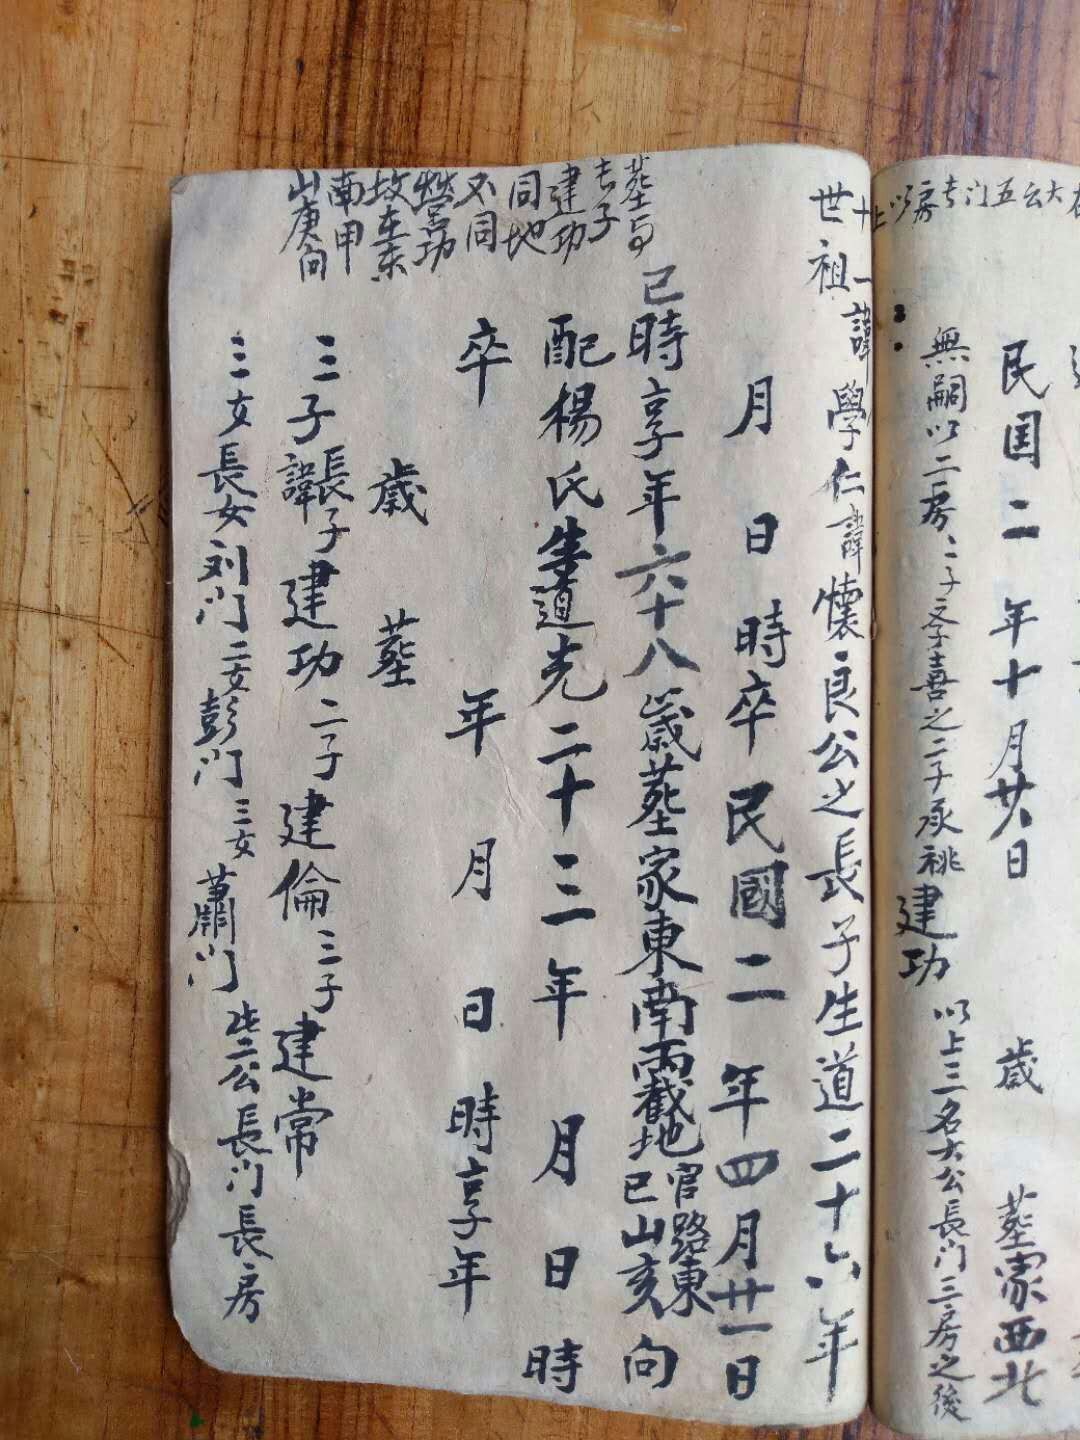 以上房長门五云大
民国二年十月廿八日 歲 葬家西北
無嗣以二房二子文喜之二子承祧建功 以上三名大公長门三房之後
十一世祖 諱學仁諱懷良公之長子生道二十六年
月 日 時卒民國二年四月廿一日
已時享年六十八歲葬家東南兩截地官路東已山亥向
配楊氏生道光二十三年 月 日 時
卒 年 月 日 時享年
歲 葬
三子諱長子建功二子建倫三子建常
三女長女刘门二女彭门三女蕭门 此二公長门長房
葬与
長子
建功
同地
不同
塋功
坟在东
南甲
山庚向